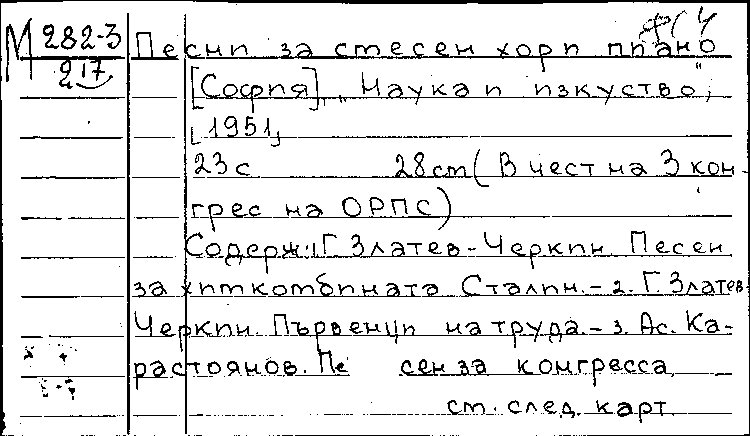 М 282-3
217
Песни за смесен хор и пиано
[София], „Наука и изкуство",
[1951]
23 с 28 cm (В чест на 3 кон-
грес на ОРПС)
Содерж: 1. Г. Златев-Черкин. Песен
за хиткомбината Сталин. - 2. Г. Златев-
Черкин. Първенци на труда. - 3. Ас. Ка-
растоянов. Пе сен за конгресса,
см. след. карт.